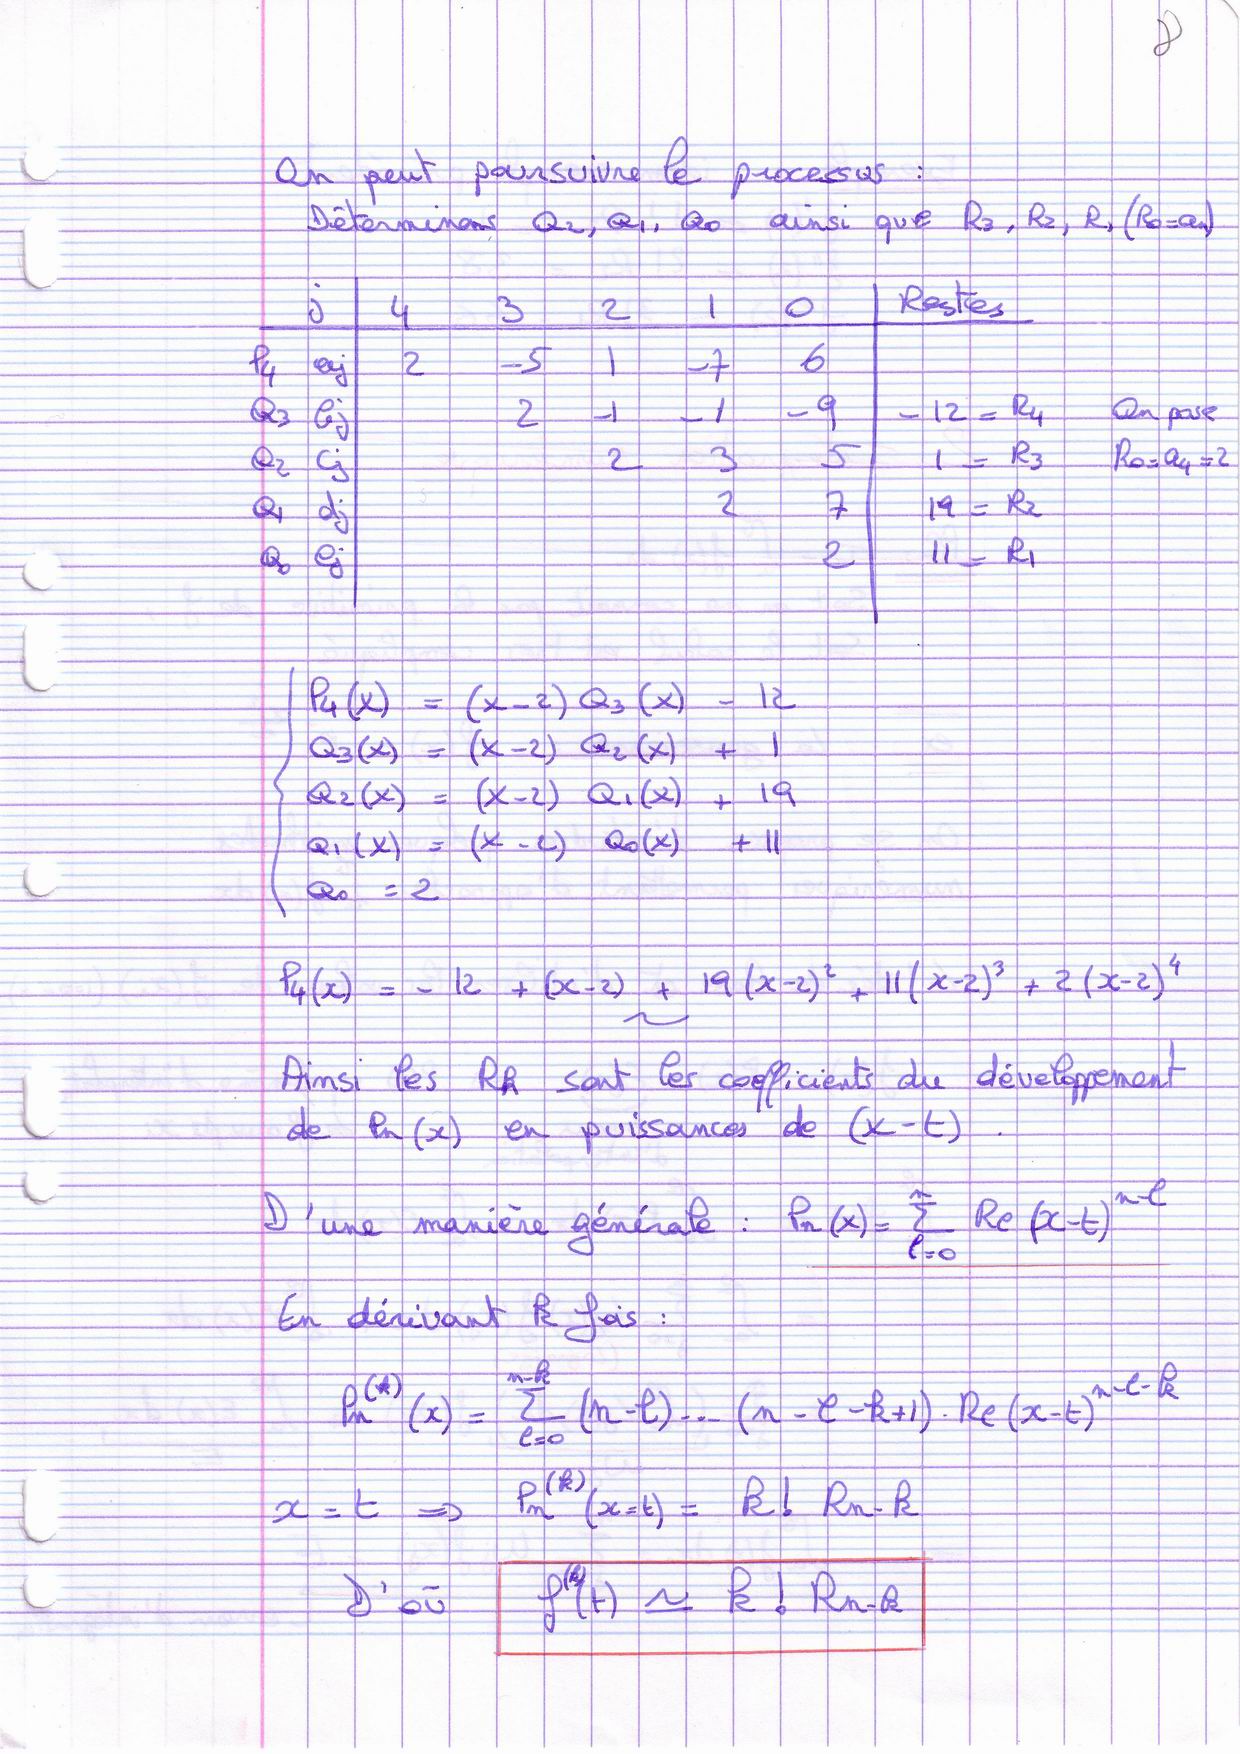 8
On peut poursuivre le processus :
Déterminons Q₂, Q₁, Q₀ ainsi que R₃, R₂, R₁ (R₀=aₙ)
j 4 3 2 1 0 Restes
P₄ aj 2 -5 1 -7 6
Q₃ bj 2 -1 -1 -9 -12 = R₄ On pose
Q₂ cj 2 3 5 1 = R₃ R₀=a₄=2
Q₁ dj 2 7 19 = R₂
Q₀ ej 2 11 = R₁
P₄(x) = (x-2) Q₃(x) - 12
Q₃(x) = (x-2) Q₂(x) + 1
Q₂(x) = (x-2) Q₁(x) + 19
Q₁(x) = (x-2) Q₀(x) + 11
Q₀ = 2
P₄(x) = - 12 + (x-2) + 19(x-2)² + 11(x-2)³ + 2(x-2)⁴
Ainsi les Rk sont les coefficients du développement
de Pn(x) en puissances de (x-t) .
D'une manière générale : Pn(x) = Σ_{l=0}^{n} Rl (x-t)^{n-l}
En dérivant k fois :
Pn^{(k)}(x) = Σ_{l=0}^{n-k} (n-l)....(n-l-k+1). Rl (x-t)^{n-l-k}
x = t ⇒ Pn^{(k)}(x=t) = k! Rn-k
D'où f^{(k)}(t) ≃ k! Rn-k